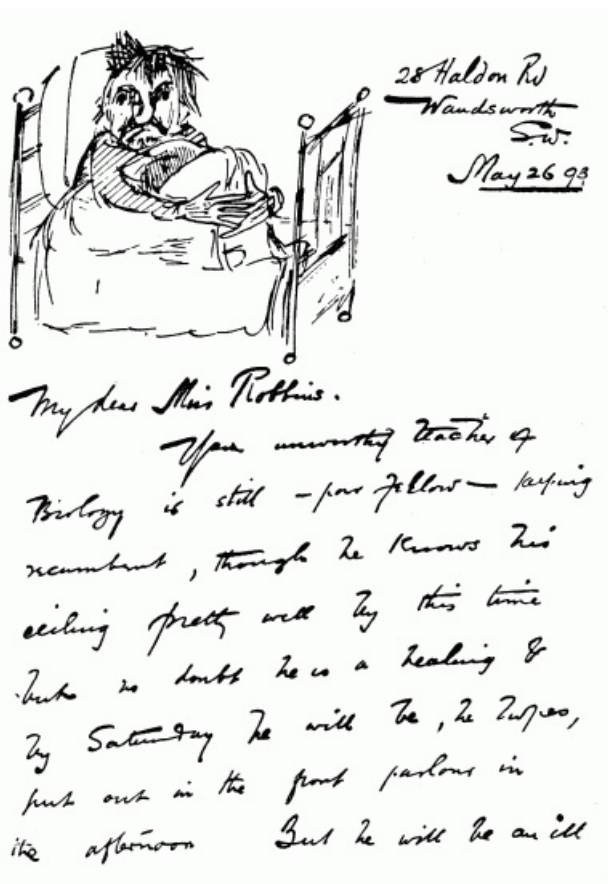 28 Haldon Rd
Wandsworth
S.W.
May 26 93
My dear Miss Robbins.
Your unworthy teacher of
Biology is still – poor fellow – keeping
recumbent, though he knows his
ceiling pretty well by this time
but no doubt he is a healing &
by Saturday he will be, he hopes,
put out in the front parlour in
the afternoon But he will be an ill